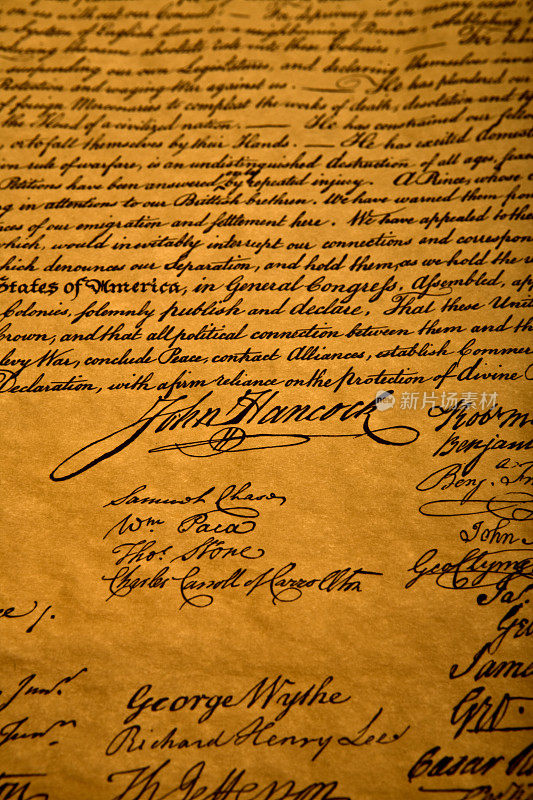 System of English Laws in a neighbouring Province, establishing
the same absolute rule into these Colonies: — For
our own Legislatures, and declaring themselves
Protection and waging War against us. — He has plundered our
of foreign Mercenaries to compleat the works of death, desolation and
the Head of a civilized nation. — He has constrained our
or to fall themselves by their Hands. — He has excited domes
rule of warfare, is an undistinguished destruction of all ages,
Petitions have been answered only by repeated injury. A Prince, whose
in attentions to our Brittish brethren. We have warned them from
of our emigration and settlement here. We have appealed to the
which, would inevitably interrupt our connections and correspon
which denounces our Separation, and hold them, as we hold the
States of America, in General Congress, Assembled, ap
Colonies, solemnly publish and declare, That these Unit
Crown, and that all political connection between them and th
levy War, conclude Peace, contract Alliances, establish Commer
Declaration, with a firm reliance on the protection of divine
John Hancock
Robt M
Benjam
Benja. Fr
John
Samuel Chase
Wm. Paca
Thos. Stone
Charles Carroll of Carrollton
Geo Clyme
Ja.
Geo
Jame
Geo.
George Wythe
Richard Henry Lee
Th Jefferson
Caesar R
视觉中国